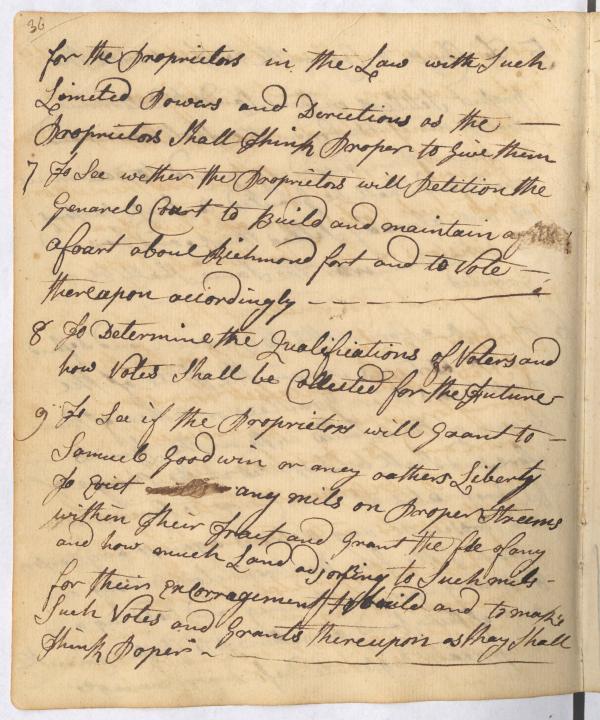 36
for the Proprietors in the Law with Such
Limited Powars and Derictions as the
Proprietors Shall think Proper to Give them
7 To See wether the Proprietors will Petition the
Genarel Court to Build and maintain a
afoart about Richmond fort and to Vote
thereupon accordingly
8 To Determine the Qualifications of Voters and
how Votes Shall be Collected for the Future
9 To See if the Proprietors will Grant to
Samuel Goodwin or aney oathers Liberty
To Erict any mils on Proper Streems
within their Tract and Grant the fee of any
and how much Land adjoring to Such mils
for their Encorragement to build and to make
Such Votes and Grants thereupon as thay Shall
Think Poper